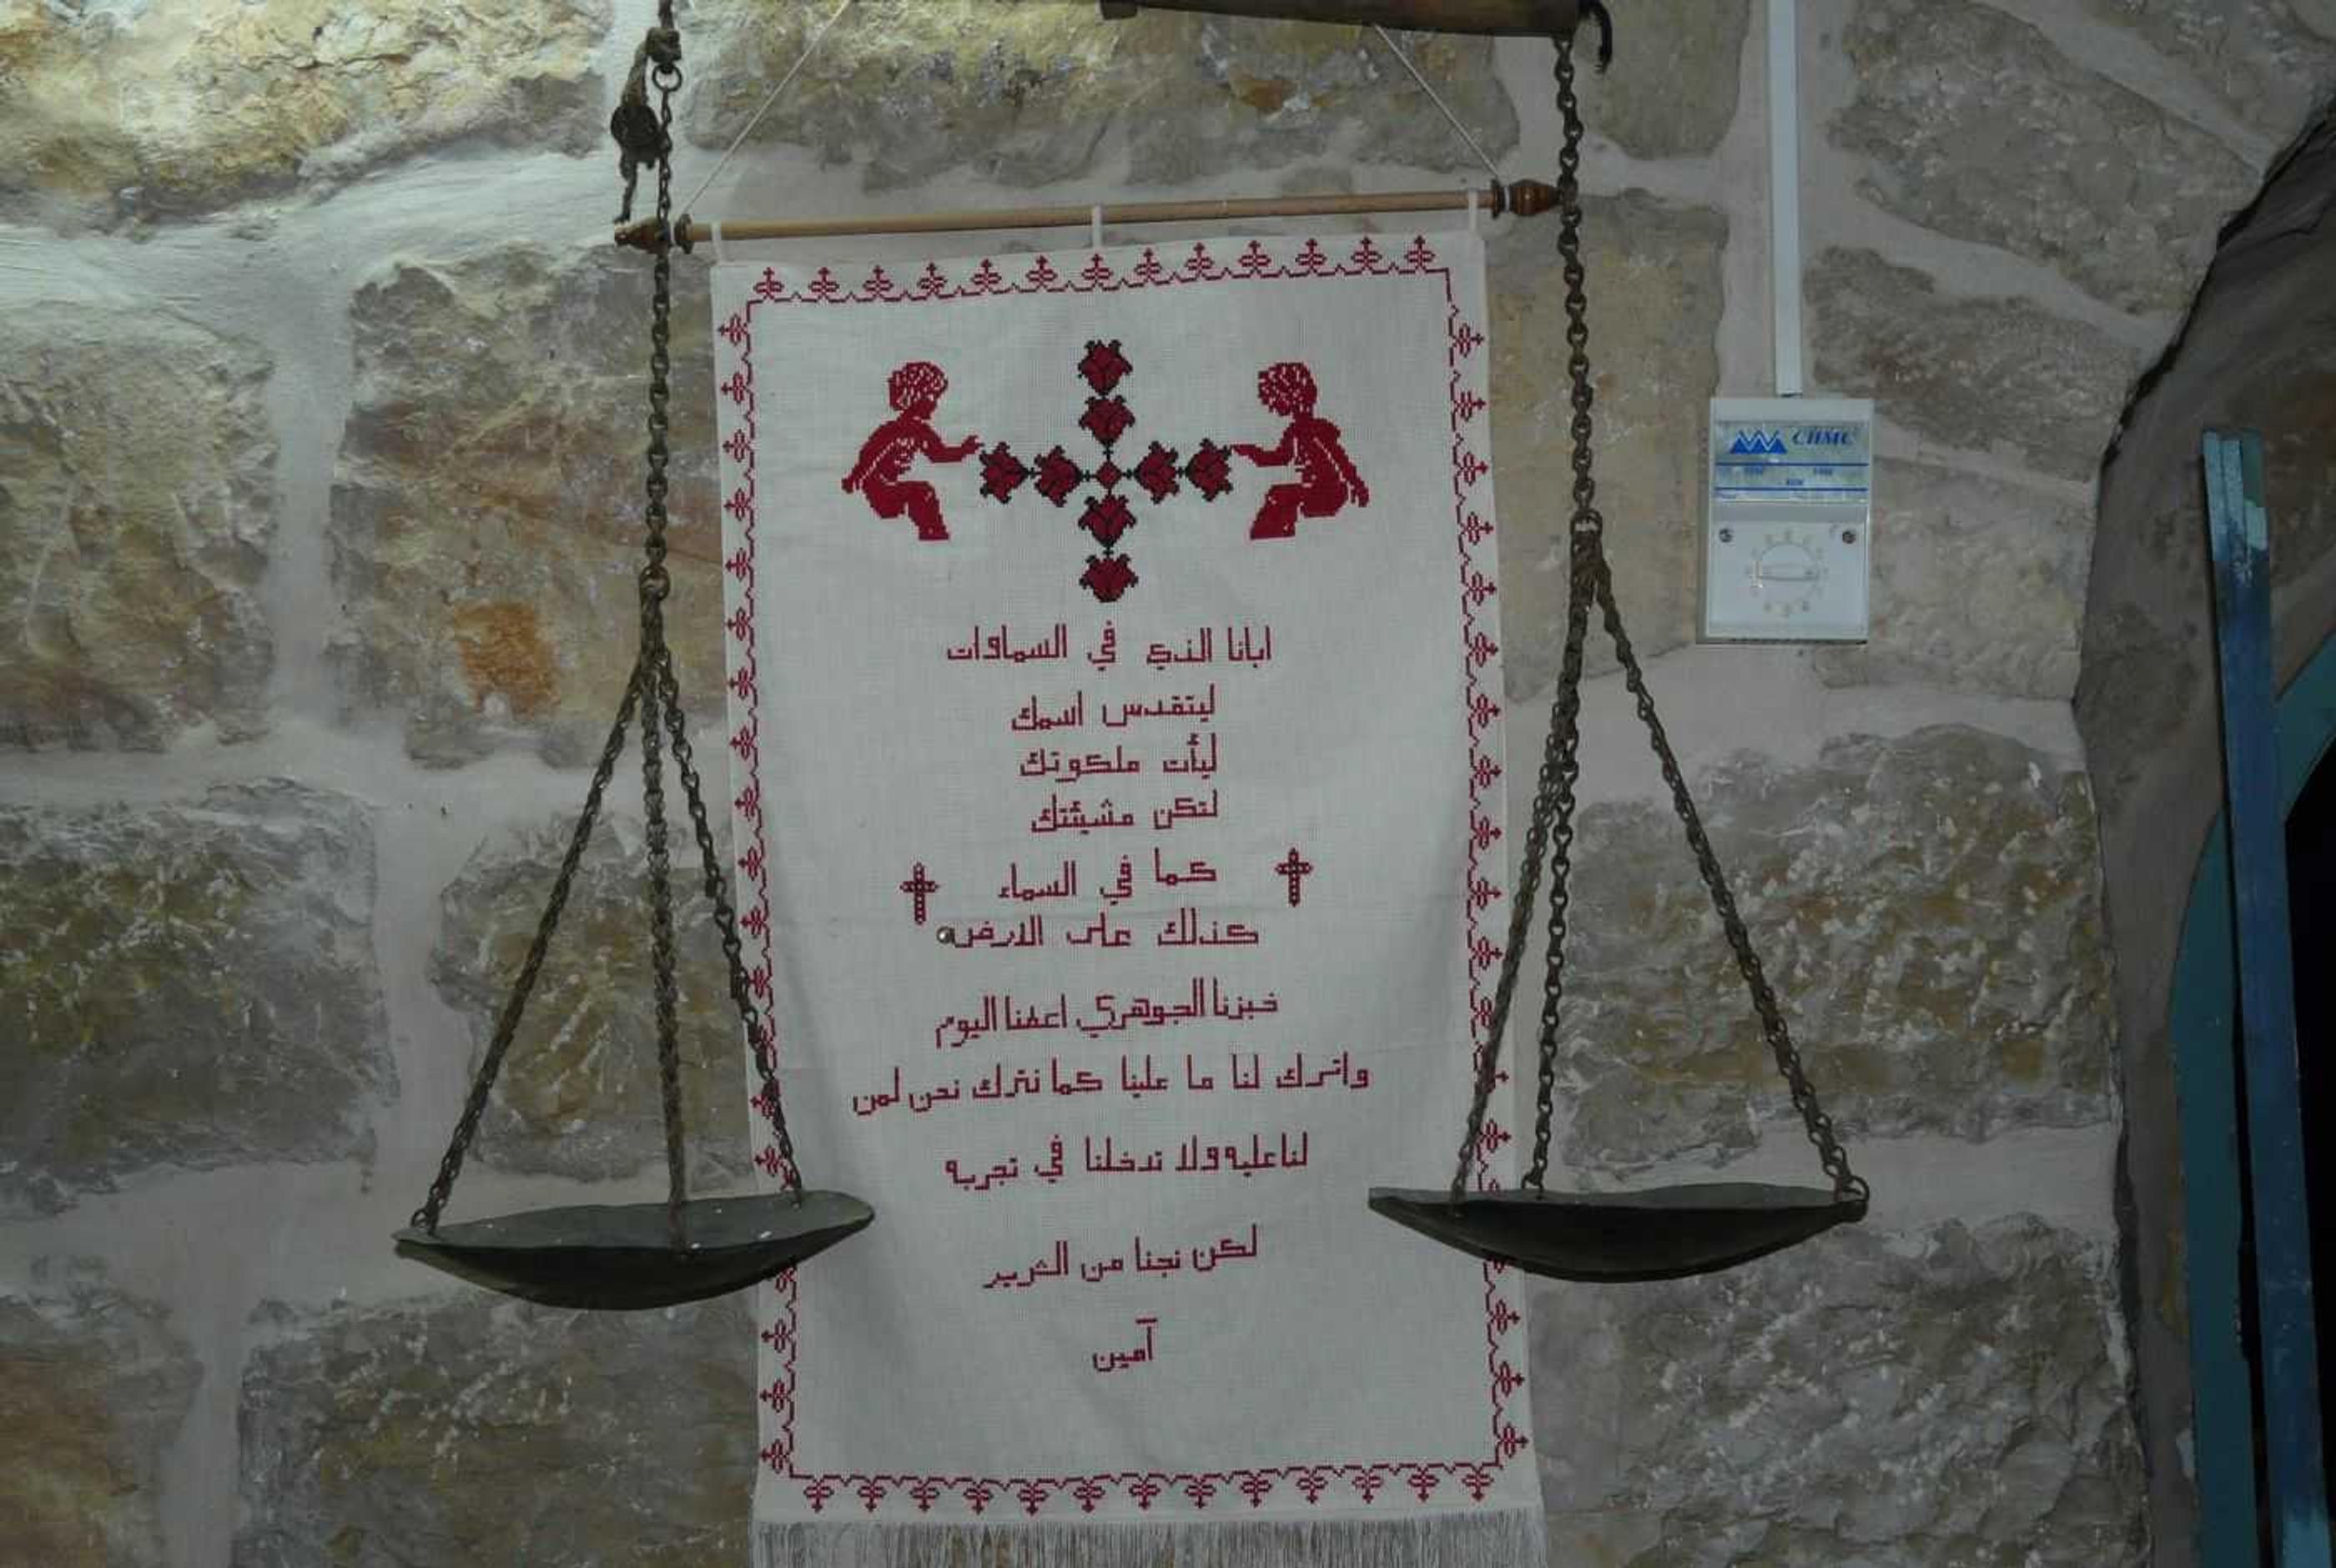 ابانا الذي في السماوات
ليتقدس اسمك
ليأت ملكوتك
لتكن مشيئتك
كما في السماء
كذلك على الارض
خبزنا الجوهري اعطنا اليوم
واترك لنا ما علينا كما نترك نحن لمن
لنا عليه ولا تدخلنا في تجربه
لكن نجنا من الشرير
آمين